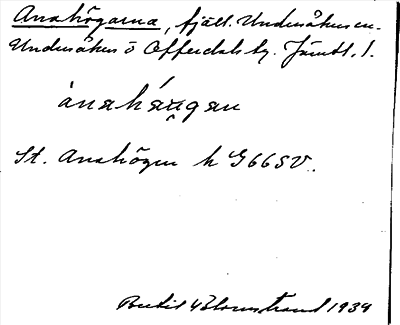 Anahögarna, fjäll. Undersåkers sn.
Undersåkers o Offerdals tg. Jämtl. l.
ànaháu̯gan
St. Anahögen h G66SV.
Bertil Blomstrand 1934